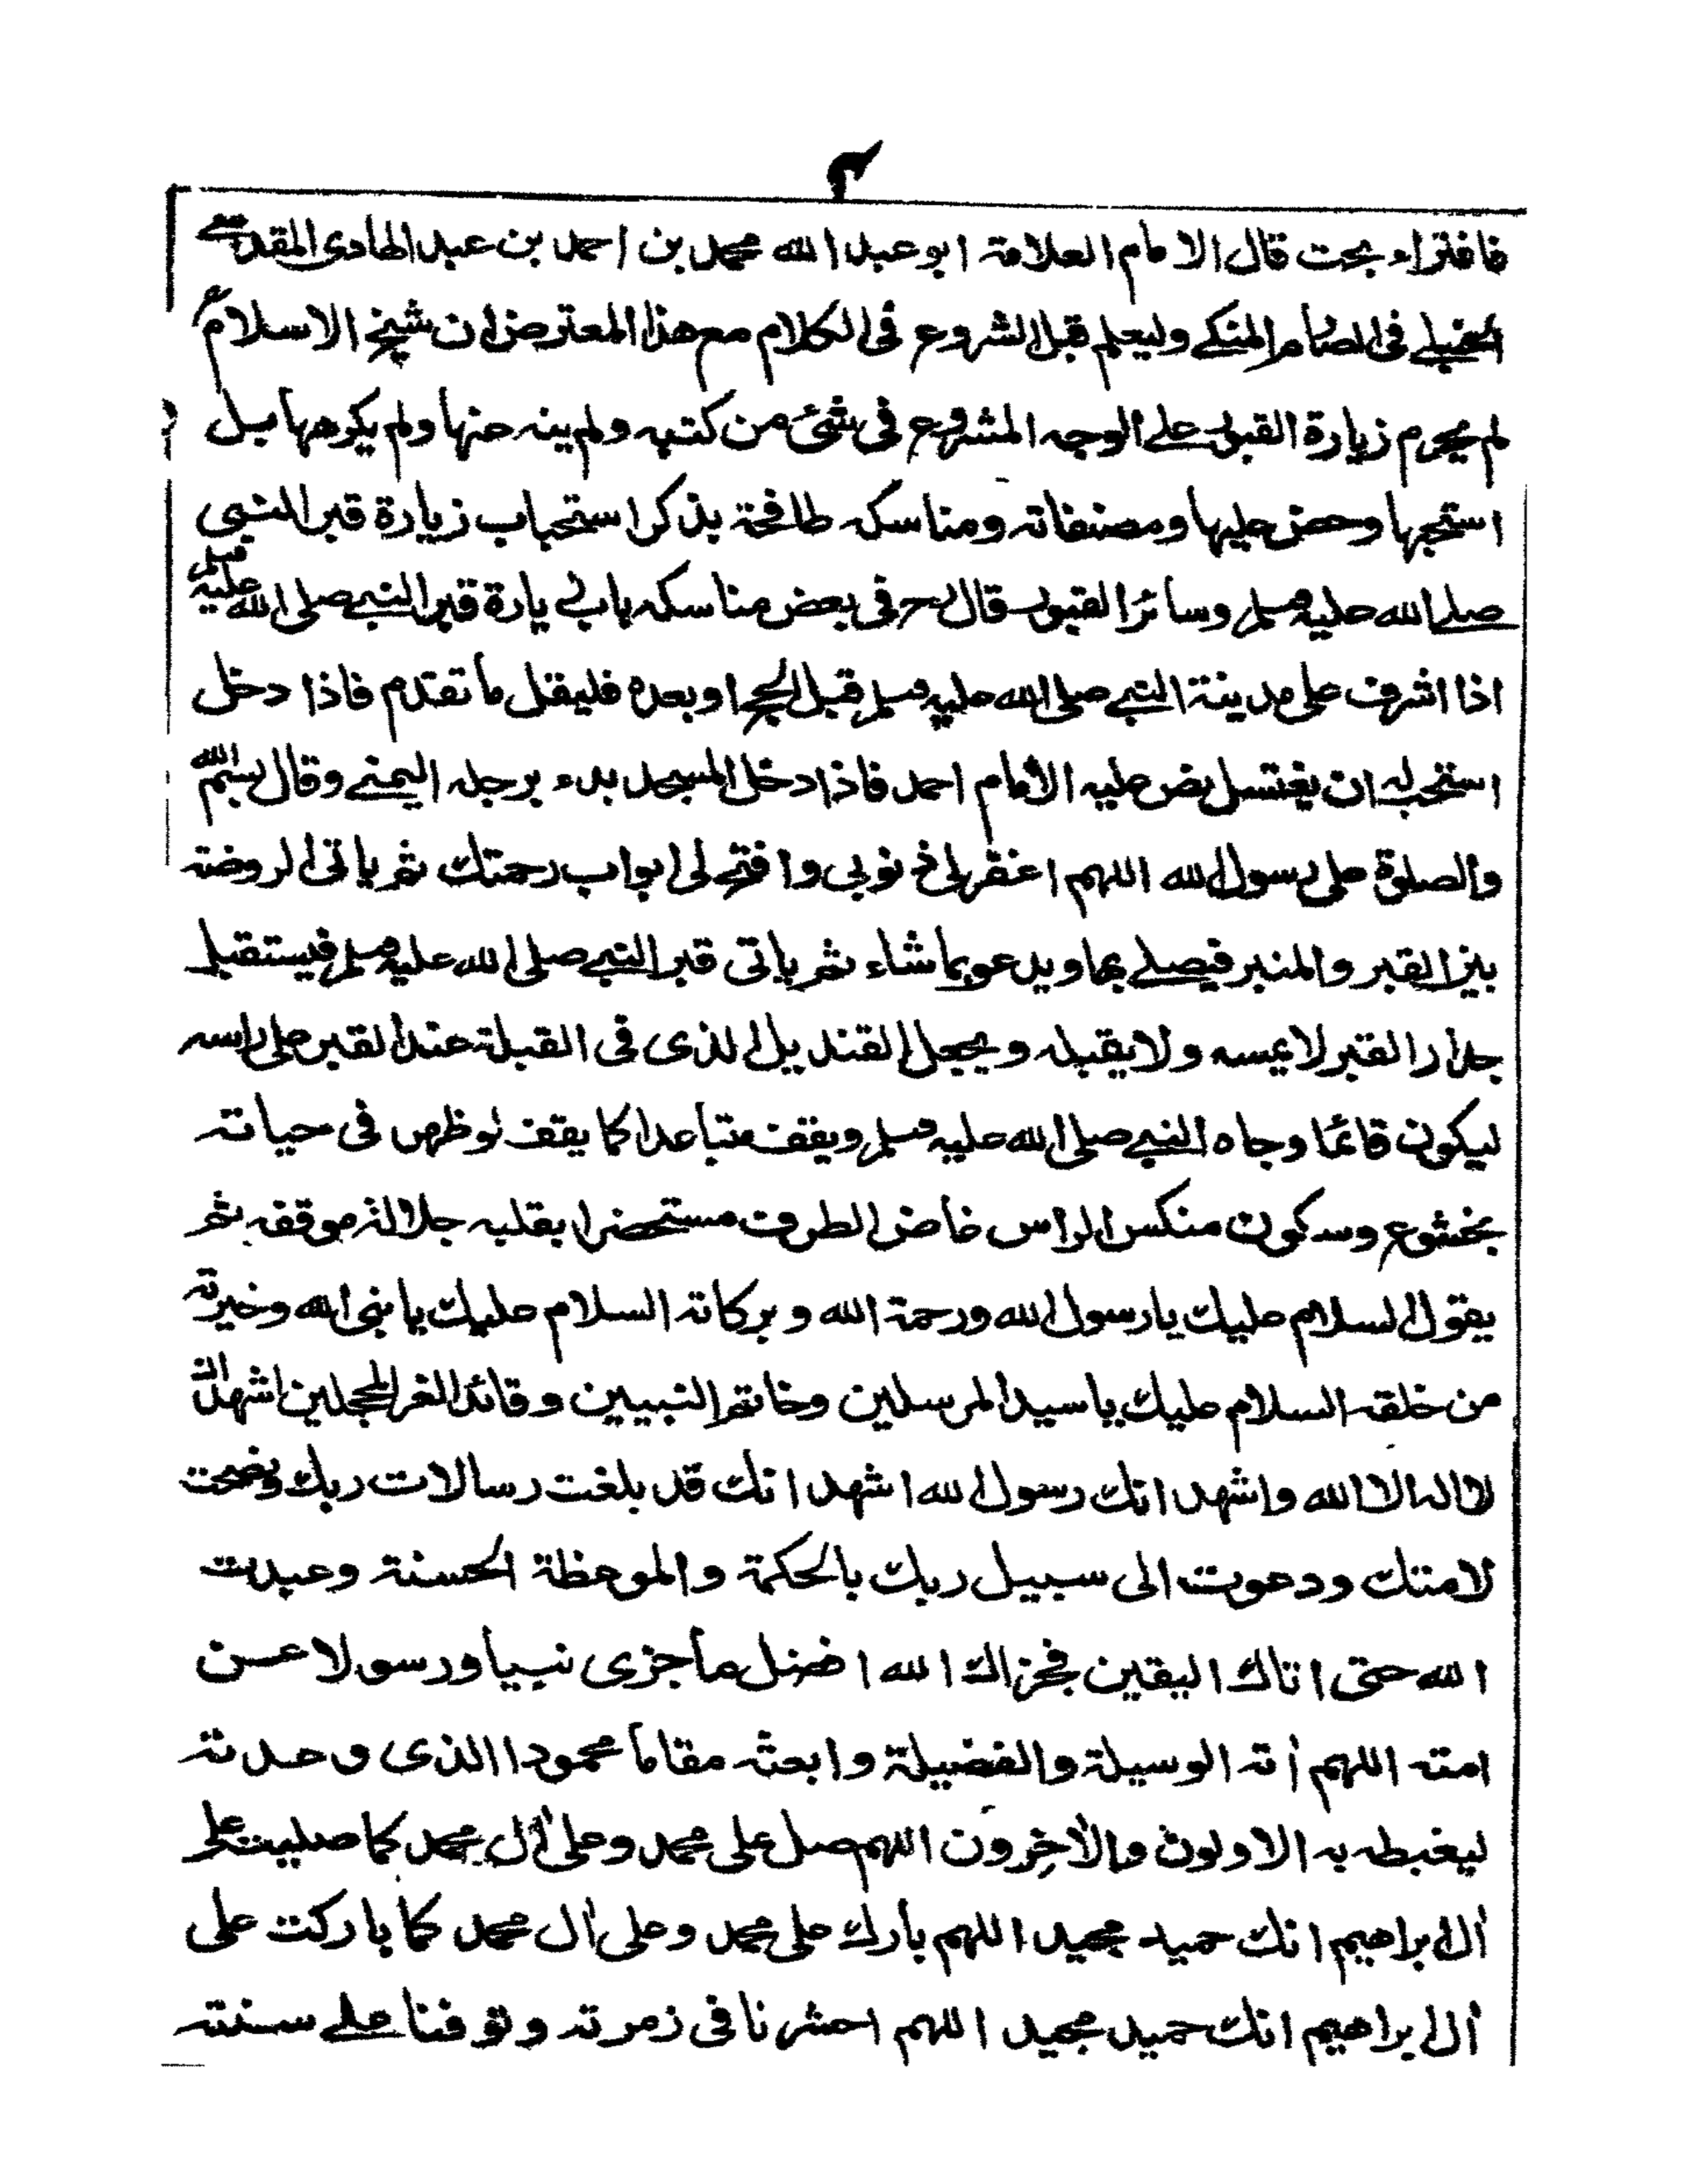 ٢
فافتراء بحت قال الامام العلامة ابو عبد الله محمد بن احمد بن عبد الهادى المقدسے
الحنبلے فى الصارم المنكے وليعلم قبل الشروع فى الكلام مع هذا المعترض ان شيخ الاسلام
لم يحرم زيارة القبور علے الوجه المشروع فى شئ من كتبه ولم ينه عنها ولم يكرهها بل
استحبها وحض عليها ومصنفاته ومناسكه طافحة بذكر استحباب زيارة قبر النبى
صلے الله عليه وسلم وسائر القبور قال رح فى بعض مناسكه باب زيارة قبر النبے صلى الله عليه وسلم
اذا اشرف على مدينة النبے صلى الله عليه وسلم قبل الحج او بعده فليقل ما تقدم فاذا دخل
استحب له ان يغتسل نص عليه الامام احمد فاذا دخل المسجد بدء برجله اليمنے وقال بسم الله
والصلوة على رسول الله اللهم اغفر لى ذنوبى وافتح لى ابواب رحمتك ثم ياتى الروضة
بين القبر والمنبر فيصلے بها ويدعو بما شاء ثم ياتى قبر النبے صلى الله عليه وسلم فيستقبل
جدار القبر لا يمسه ولا يقبله ويجعل القنديل الذى فى القبلة عند القبر على راسه
ليكون قائما وجاه النبے صلى الله عليه وسلم ويقف متباعدا كما يقف لو ظهر فى حياته
بخشوع وسكون منكس الراس خاض الطرف مستحضرا بقلبه جلالة موقفه ثم
يقول السلام عليك يا رسول الله ورحمة الله وبركاته السلام عليك يا نبى الله وخيرته
من خلقه السلام عليك يا سيد المرسلين وخاتم النبيين وقائد الغر المحجلين اشهد ان
لا اله الا الله واشهد انك رسول الله اشهد انك قد بلغت رسالات ربك ونصحت
لامتك ودعوت الى سبيل ربك بالحكمة والموعظة الحسنة وعبدت
الله حتى اتاك اليقين فجزاك الله افضل ما جزى نبيا ورسولا عن
امته اللهم اٰته الوسيلة والفضيلة وابعثه مقاما محمودا الذى وعدته
ليغبطه به الاولون والاخرون اللهم صل على محمد وعلى اٰل محمد كما صليت على
اٰل ابراهيم انك حميد مجيد اللهم بارك على محمد وعلى اٰل محمد كما باركت على
اٰل ابراهيم انك حميد مجيد اللهم احشرنا فى زمرته وتوفنا علے سنته